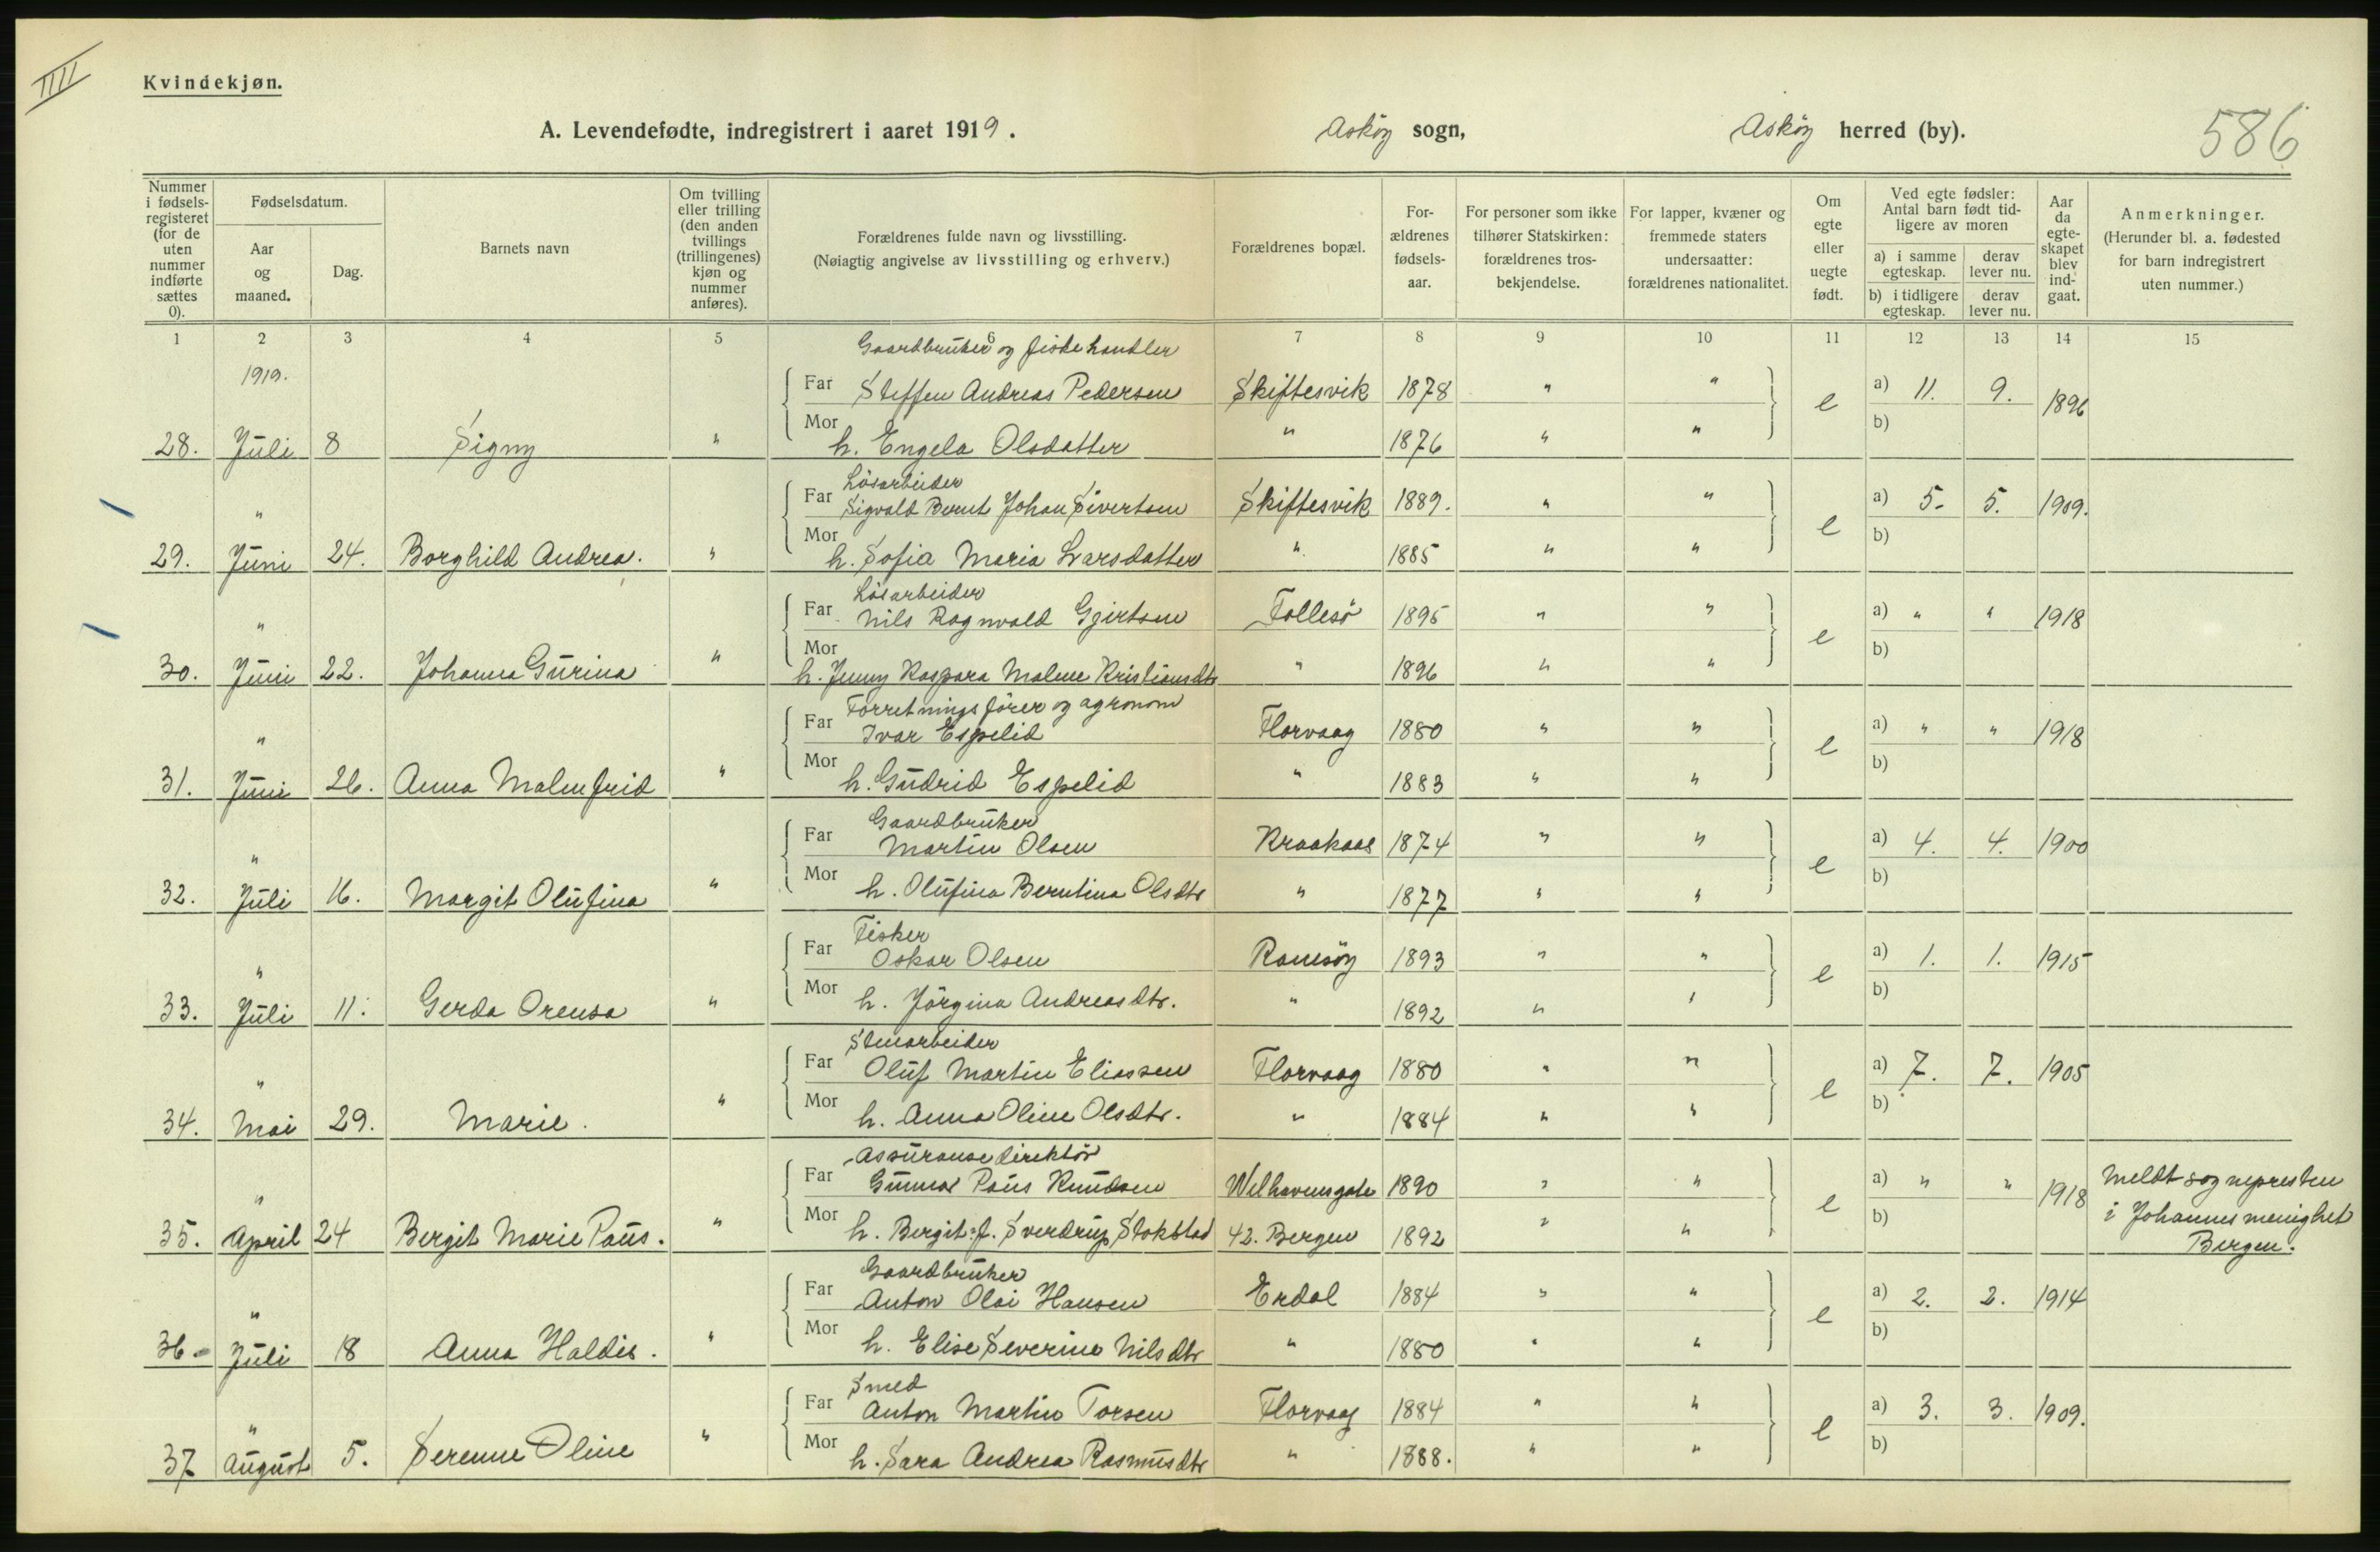 IIII
Kvindekjøn.
A. Levendefødte, indregistrert i aaret 1919. Askøy sogn, Askøy herred (by). 586
Nummer i fødsels-registeret (for de uten nummer indførte sættes 0). Fødselsdatum. Aar og maaned. Dag. Barnets navn Om tvilling eller trilling (den anden tvillings (trillingenes) kjøn og nummer anføres). Forældrenes fulde navn og livsstilling. (Nøiagtig angivelse av livsstilling og erhverv.) Forældrenes bopæl. For-ældrenes fødsels-aar. For personer som ikke tilhører Statskirken: forældrenes tros-bekjendelse. For lapper, kvæner og fremmede staters undersaatter: forældrenes nationalitet. Om egte eller uegte født. Ved egte fødsler: Antal barn født tid-ligere av moren a) i samme egteskap. derav lever nu. b) i tidligere egteskap. derav lever nu. Aar da egte-skapet blev ind-gaat. Anmerkninger. (Herunder bl. a. fødested for barn indregistrert uten nummer.)
1 2 3 4 5 6 7 8 9 10 11 12 13 14 15
Gaardbruker og fiskehandler
1919. Far Steffen Andreas Pedersen Skiftesvik 1878 " " e a) 11. 9. 1896
28. Juli 8 Signy " Mor h. Engela Olsdatter " 1876 " " b)
Løsarbeider
" Far Sigvald Bernt Johan Sivertsen Skiftesvik 1889. " " e a) 5. 5. 1909.
29. Juni 24. Borghild Andrea. " Mor h. Sofia Maria Larsdatter " 1885 " " b)
Løsarbeider
" Far Nils Ragnvald Gjertsen Follesö 1895 " " e a) " " 1918
30. Juni 22. Johanna Gurina " Mor h. Jenny Kaspara Malene Kristiansdtr " 1896 " " b)
Forretningsfører og agronom
" Far Ivar Espelid Florvaag 1880 " " e a) " " 1918
31. Juni 26. Anna Malmfrid " Mor h. Gudrid Espelid " 1883 " " b)
Gaardbruker
" Far Martin Olsen Kraakaas 1874 " " e a) 4. 4. 1900
32. Juli 16. Margit Olufina " Mor h. Olufina Berntina Olsdtr " 1877 " " b)
Fisker
" Far Oskar Olsen Ramsöy 1893 " " e a) 1. 1. 1915
33. Juli 11. Gerda Orensa " Mor h. Jörgina Andreasdtr. " 1892 " " b)
Stenarbeider
" Far Oluf Martin Eliassen Florvaag 1880 " " e a) 7. 7. 1905
34. Mai 29. Marie. " Mor h. Anna Oline Olsdtr. " 1884 " " b)
Assuransedirektör
" Far Gunnar Paus Knudsen Welhavensgate 1890 " " e a) " " 1918 Meldt sognepresten
35. April 24 Bergit Marie Paus. " Mor h. Bergit f. Sverdrup Stokstad 42. Bergen 1892 " " b) i Johannes menighet
Bergen.
Gaardbruker
" Far Anton Olai Hansen Erdal 1884 " " e a) 2. 2. 1914
36. Juli 18 Anna Haldis. " Mor h. Elise Severine Nilsdtr " 1880 " " b)
Smed
" Far Anton Martin Torsen Florvaag 1884 " " e a) 3. 3. 1909.
37 August 5. Serenne Oline " Mor h. Sara Andrea Rasmusdtr " 1888. " " b)